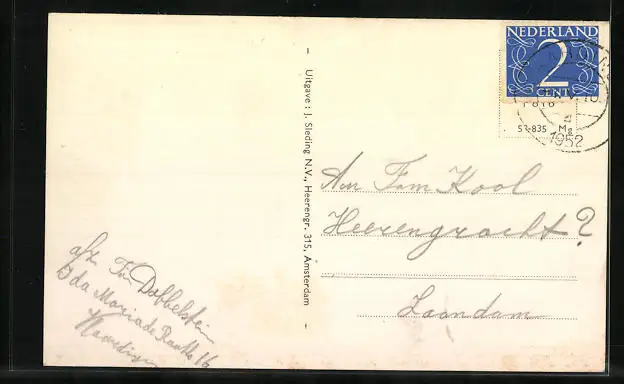 NEDERLAND
2
CENT
Foto
53-835 Mg
1952
Aan Fam Kool
Heerengracht ?
Zaandam
Uitgave : J. Sleding N.V., Heerengr. 315, Amsterdam
afz. Fam Dobbelstein
Ida Maria de Raetstr 16